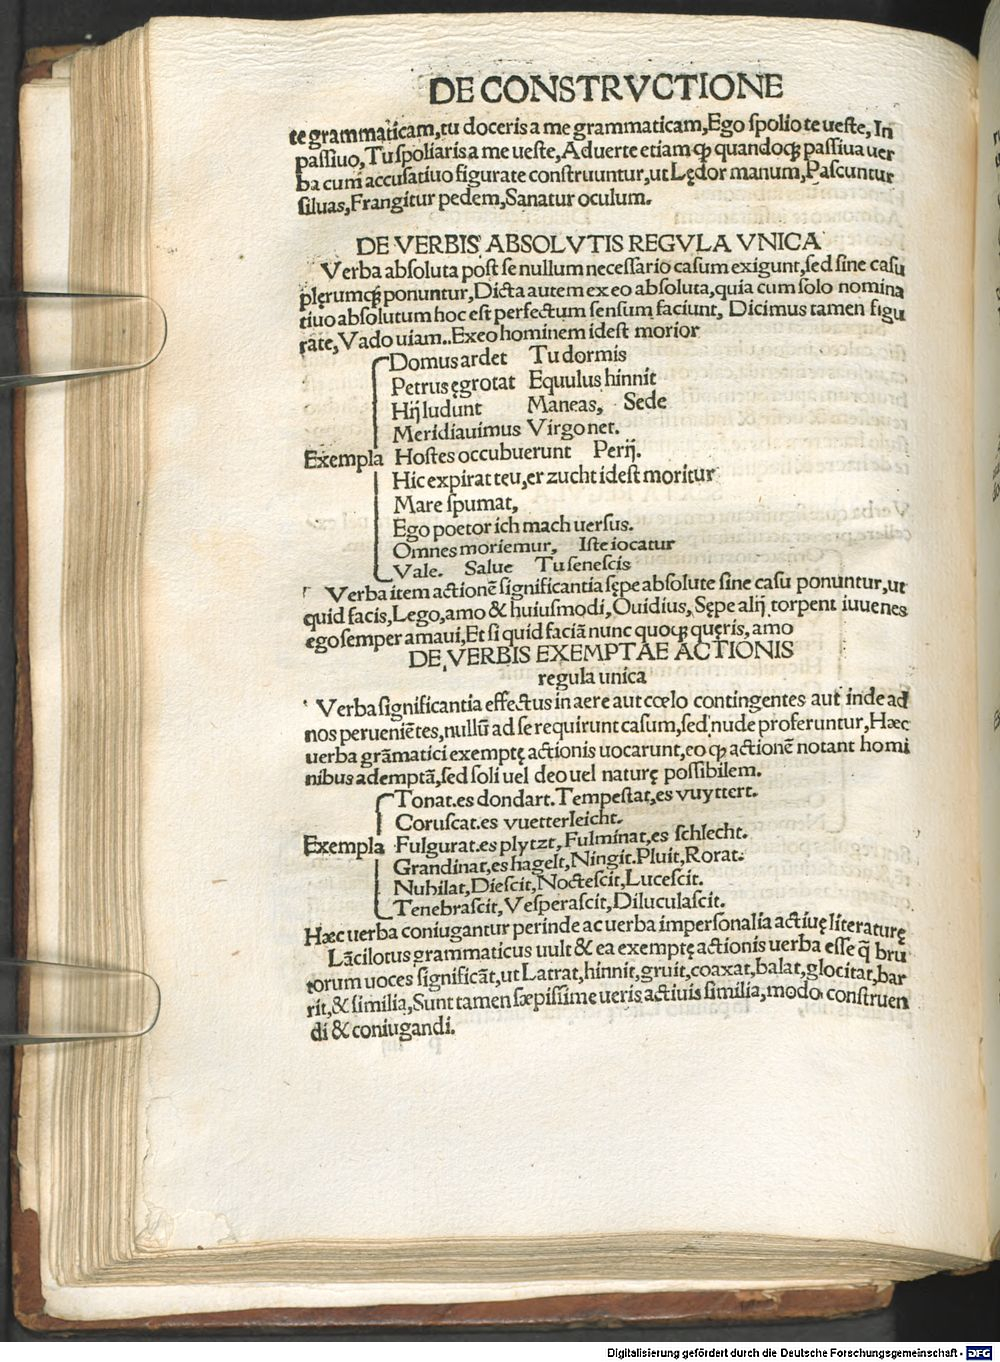 DE CONSTRVCTIONE
te grammaticam,tu doceris a me grammaticam,Ego ſpolio te ueſte, In
paſſiuo, Tu ſpoliaris a me ueſte, Aduerte etiam ꝙ quandoqꝫ paſſiua uer
ba cum accuſatiuo figurate conſtruuntur,ut Lędor manum,Paſcuntur
ſiluas,Frangitur pedem,Sanatur oculum.
DE VERBIS ABSOLVTIS REGVLA VNICA
Verba abſoluta poſt ſe nullum neceſſario caſum exigunt,ſed ſine caſu
plęrumqꝫ ponuntur,Dicta autem ex eo abſoluta,quia cum ſolo nomina
tiuo abſolutum hoc eſt perfectum ſenſum faciunt, Dicimus tamen figu
rate,Vado uiam..Exeo hominem ideſt morior
Domus ardet Tu dormis
Petrus ęgrotat Equulus hinnit
Hij ludunt Maneas, Sede
Meridiauimus Virgo net.
Exempla Hoſtes occubuerunt Perij.
Hic expirat teu,er zucht ideſt moritur
Mare ſpumat,
Ego poetor ich mach uerſus.
Omnes moriemur, Iſte iocatur
Vale. Salue Tu ſeneſcis
Verba item actionē ſignificantia ſępe abſolute ſine caſu ponuntur,ut
quid facis,Lego,amo & huiuſmodi,Ouidius,Sępe alij torpent iuuenes
ego ſemper amaui,Et ſi quid faciā nunc quoqꝫ quęris, amo
DE VERBIS EXEMPTAE ACTIONIS
regula unica
Verba ſignificantia effectus in aere aut cœlo contingentes aut inde ad
nos perueniētes,nullū ad ſe requirunt caſum,ſed nude proferuntur,Hæc
uerba grāmatici exemptę actionis uocarunt,eo ꝙ actionē notant homi
nibus ademptā,ſed ſoli uel deo uel naturę poſſibilem.
Tonat.es dondart.Tempeſtat,es vuyttert.
Coruſcat.es vuetterleicht.
Exempla Fulgurat.es plytzt,Fulminat,es ſchlecht.
Grandinat,es hagelt,Ningit.Pluit,Rorat.
Nubilat,Dieſcit,Nocteſcit,Luceſcit.
Tenebraſcit,Veſperaſcit,Diluculaſcit.
Hæc uerba coniugantur perinde ac uerba imperſonalia actiuę literaturę
Lācilotus grammaticus uult & ea exemptę actionis uerba eſſe q̄ bru
torum uoces ſignificāt,ut Latrat,hinnit,gruit,coaxat,balat,glocitat,bar
rit,& ſimilia,Sunt tamen ſæpiſſime ueris actiuis ſimilia,modo conſtruen
di & coniugandi.
Digitalisierung gefördert durch die Deutsche Forschungsgemeinschaft - DFG